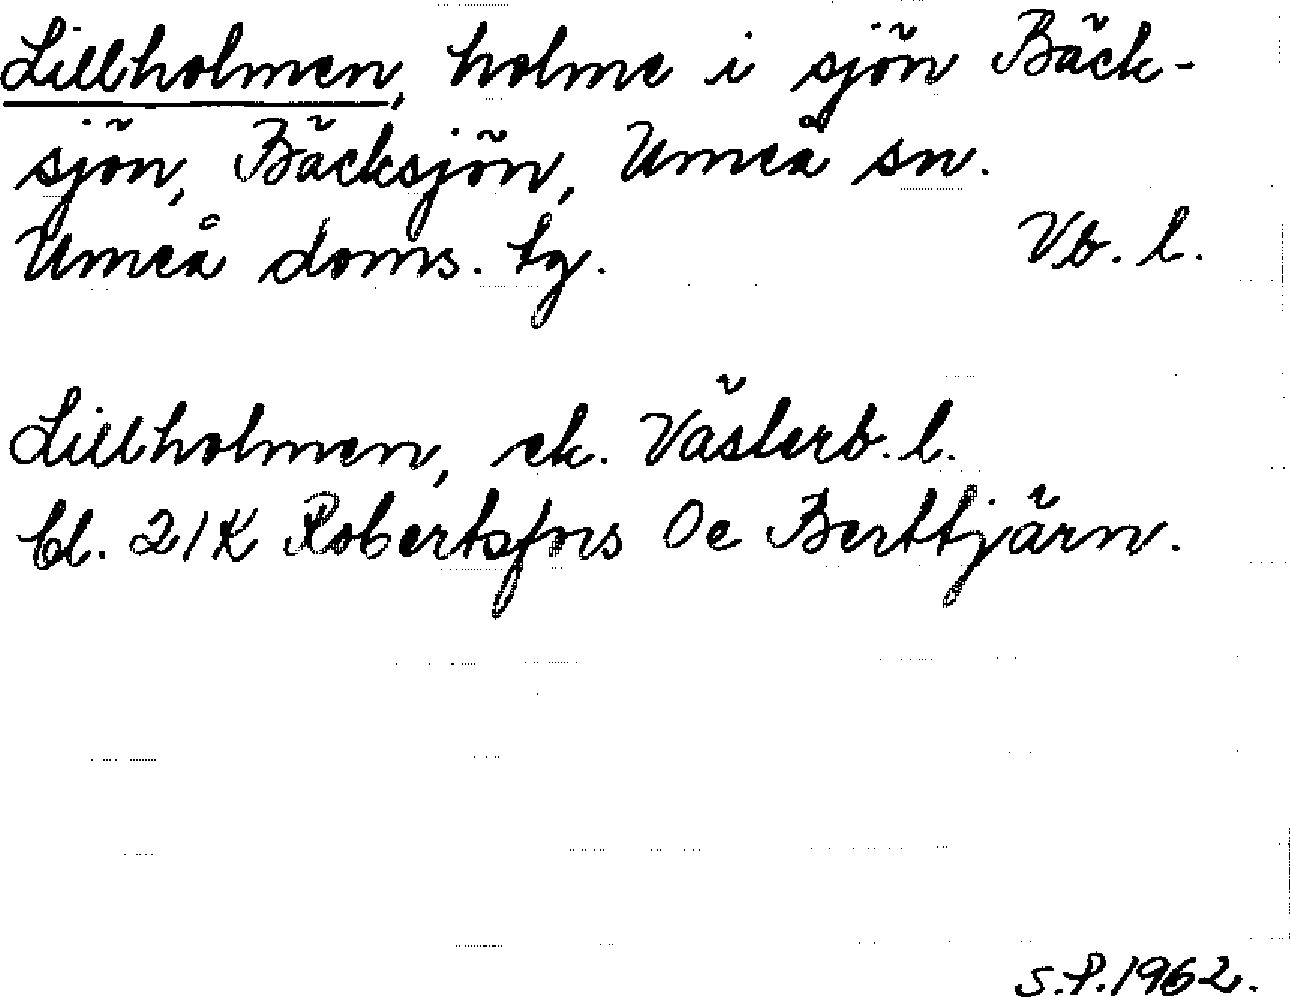 Lillholmen, holme i sjön Bäck-
sjön, Bäcksjön, Umeå sn.
Umeå doms. tg. Vb. l.
Lillholmen, ek. Västerb. l.
bl. 21K Robertsfors Oe Berttjärn.
S.P. 1962.